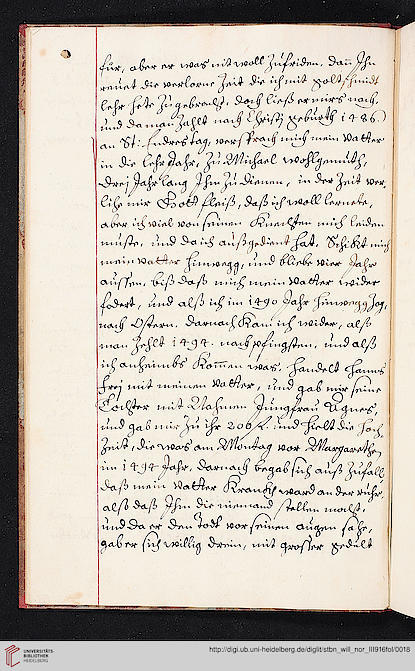 für, aber er was nit woll Zufriden. dan Ihn
reuet die verlorne Zeit die ich mit goltschmidt
lehr hete Zugebracht. doch ließ er mirs nach,
und da man Zahlt nach Christj geburth 1486.
an St: Endres tag, versprach mich mein vatter
in die lehr Jahr, Zu Michael wohlgemuth,
drej Jahr lang Ihm Zu dienen, in der Zeit ver,
lihe mir Gott fleiß, daß ich woll lernete,
aber ich viel von seinen Knechten mich leiden
muste, und da ich außgedient hat. Schikt mich
mein vatter hinwegg, und bliebe vier Jahr
aussen, biß daß mich mein vatter wider
fodert, und alß ich im 1490 Jahr hinwegg Zog,
nach Ostern. darnach Kam ich wider, alß
man Zehlt 1494. nach pfingsten, und alß
ich anheimbs Kommen was. handelt Hanns
frej mit meinem vatter, und gab mir seine
Tochter mit Nahmen Jungfrau Agnes,
und gab mir Zu ihr 200 f. und hielt die hoch,
Zeit, die was am Montag vor Margarethe
im 1494 Jahr, darnach begab sich auß Zufall,
daß mein vatter Kranckh ward an der ruhr,
alß daß Ihm die niemand stellen mocht,
und da er den Todt vor seinen augen sahe,
gab er sich willig drein, mit grosser gedult
UNIVERSITÄTS-
BIBLIOTHEK
HEIDELBERG
http://digi.ub.uni-heidelberg.de/diglit/stbn_will_nor_III916fol/0018